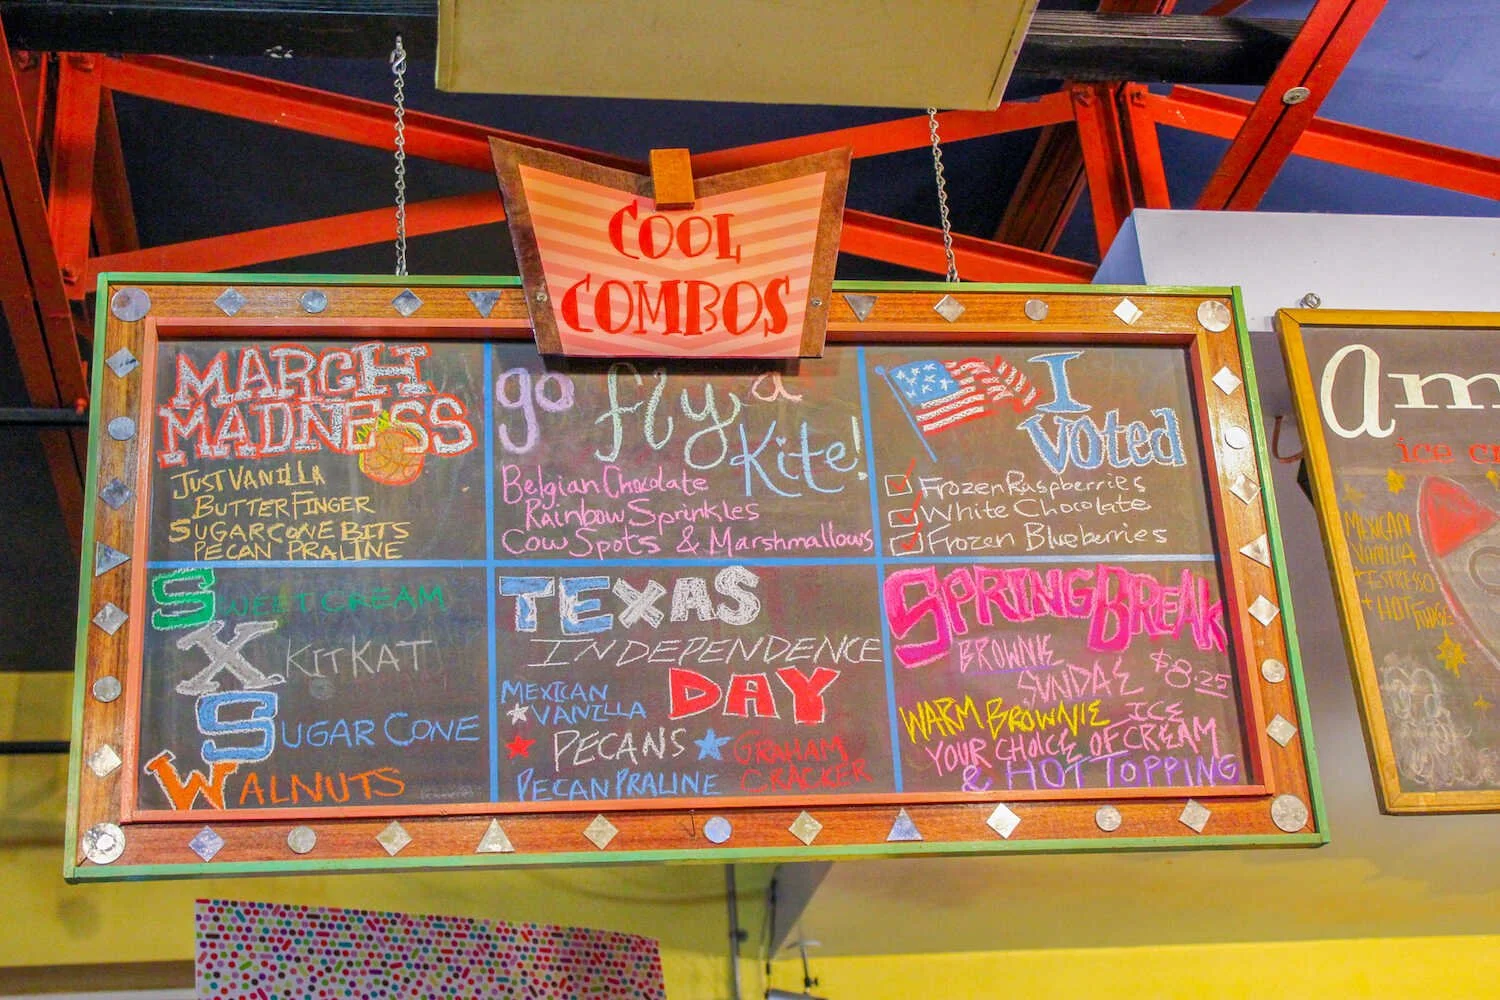 COOL
COMBOS
MARCH
MADNESS
JUST VANILLA
BUTTERFINGER
SUGARCONE BITS
PECAN PRALINE
go fly a
Kite!
Belgian Chocolate
Rainbow Sprinkles
Cow Spots & Marshmallows
I
Voted
Frozen Raspberries
White Chocolate
Frozen Blueberries
SWEET CREAM
X KITKAT
SUGAR CONE
WALNUTS
TEXAS
INDEPENDENCE
DAY
MEXICAN
VANILLA
PECANS
PECAN PRALINE
GRAHAM
CRACKER
SPRING BREAK
BROWNIE
SUNDAE $8.25
WARM BROWNIE
YOUR CHOICE OF ICE CREAM
& HOT TOPPING
Am
ice cr
MEXICAN
VANILLA
+ ESPRESSO
+ HOT FUDGE